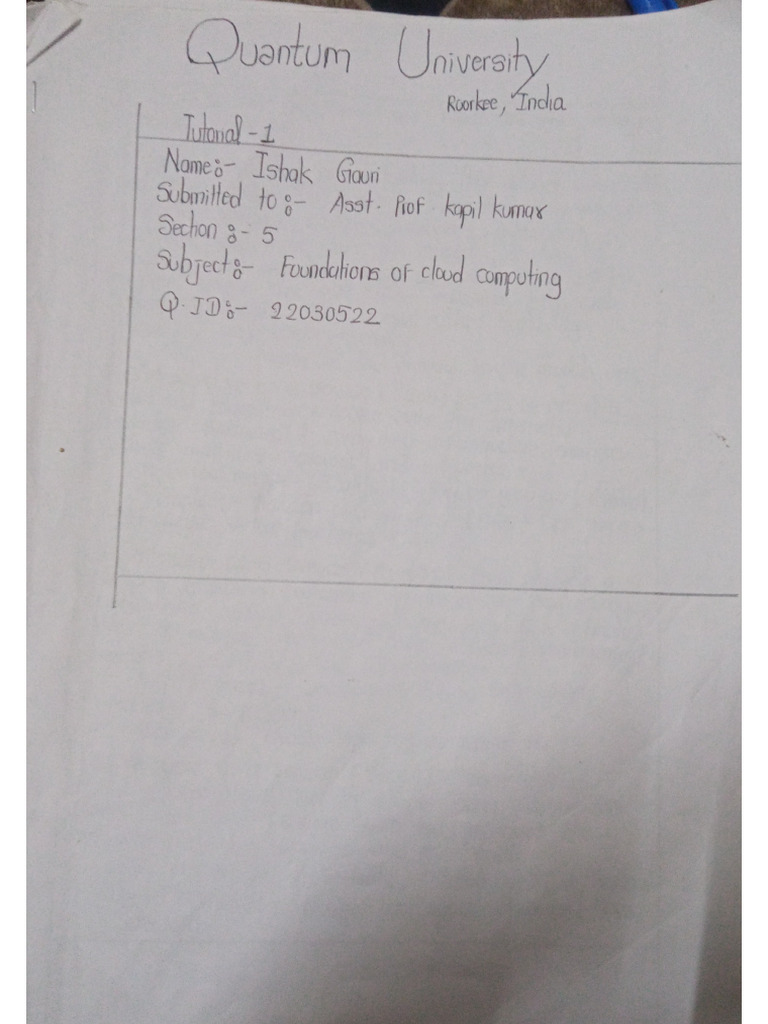 Quantum University
Roorkee, India
Tutorial - 1
Name:- Ishak Gauri
Submitted to :- Asst. Prof. kapil kumar
Section :- 5
Subject:- Foundations of cloud computing
Q.ID:- 22030522